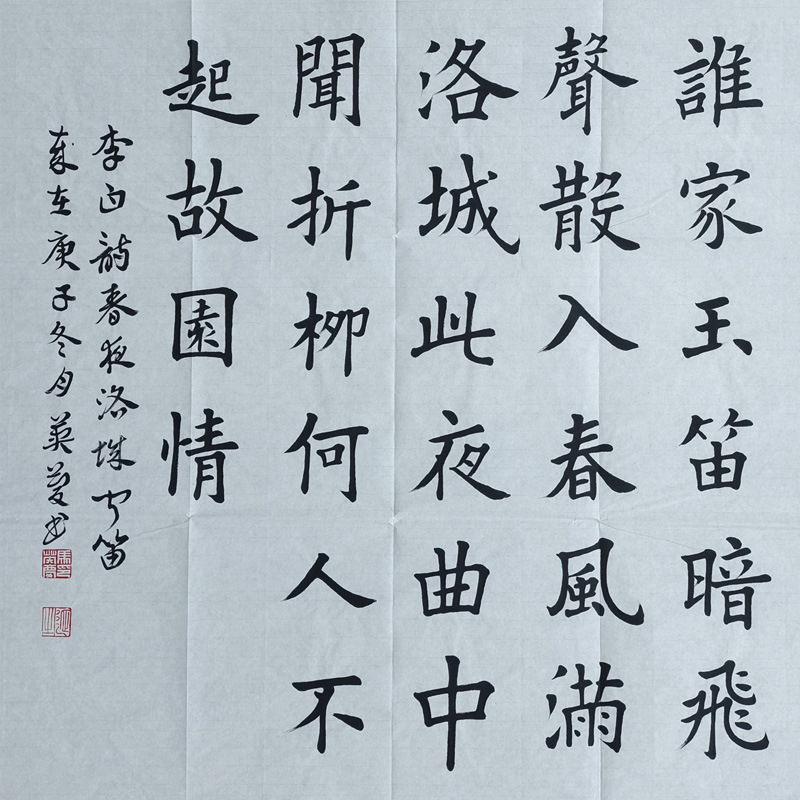 誰家玉笛暗飛
聲散入春風滿
洛城此夜曲中
聞折柳何人不
起故園情
李白詩春夜洛城聞笛
歲在庚子冬月英蔓书